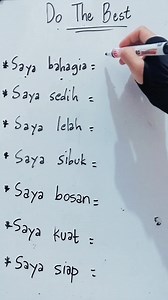 Do The Best
* Saya bahagia =
* Saya sedih =
* Saya lelah =
* Saya sibuk =
* Saya bosan =
* Saya kuat =
* Saya siap =